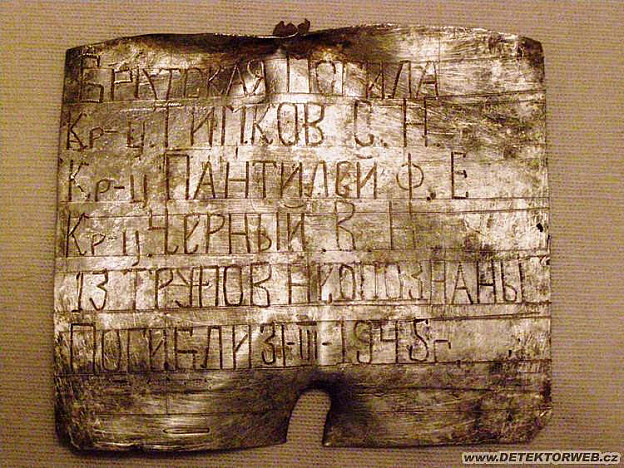 БРАТСКАЯ МОГИЛА
Кр-ц. ТИМКОВ С. Н.
Кр-ц. ПАНТИЛЕЙ Ф. Е
Кр-ц. ЧЕРНЫЙ В. Н.
13 ТРУПОВ НЕОПОЗНАНЫ
ПОГИБЛИ 31-III-1945г.
www.DETEKTORWEB.cz